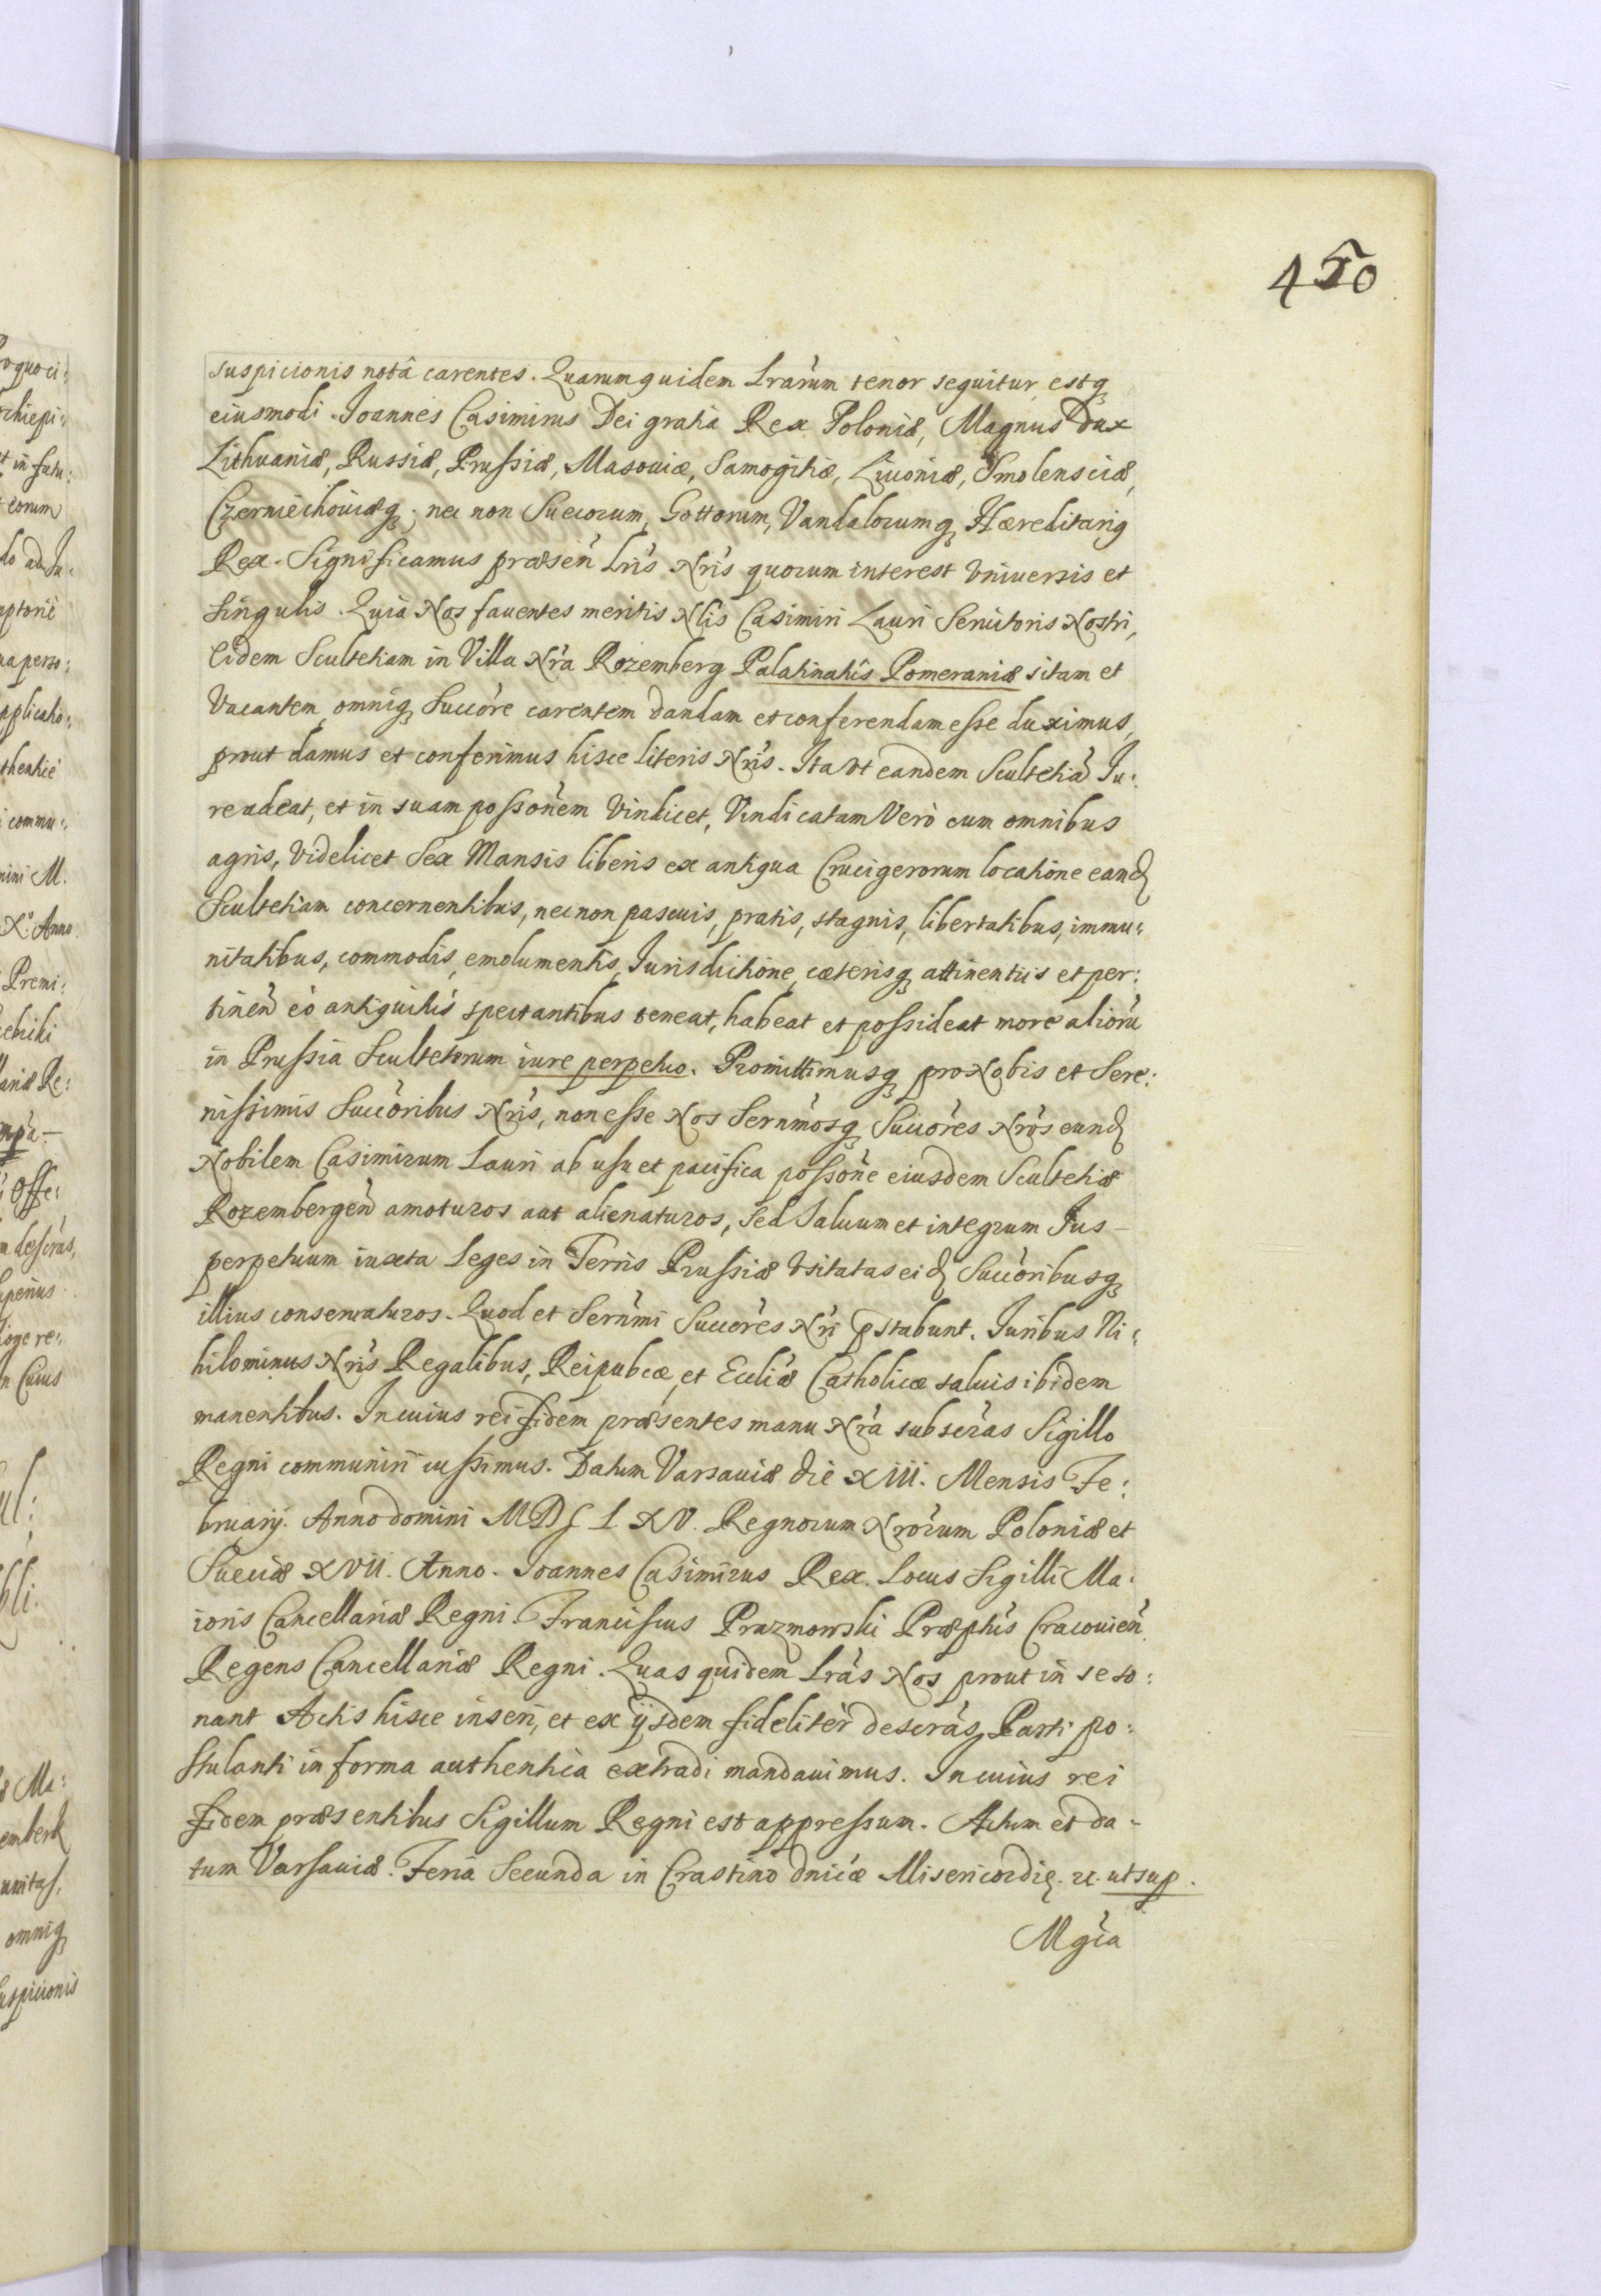 450
suspicionis notâ carentes. Quarum quidem Lrãrum tenor sequitur, estq̃
eiusmodi. Joannes Casimirus Dei gratia Rex Poloniæ, Magnus Dux
Lithuaniæ, Russiæ, Prussiæ, Masouiæ, Samogitiæ, Liuoniæ, Smolensciæ,
Czerniechouiæq̃; nec non Suecorum, Gottorum, Vandalorumq̃ Hæreditariq
Rex. Significamus præseñ Lris̃ Nris̃ quorum interest vniuersis et
singulis. Quia Nos fauentes meritis Nlis̃ Casimiri Lauri Seruitoris Nostri,
Eidem Scultetiam in Villa Nrã Rozemberg Palatinatûs Pomeraniæ sitam et
Vacantem, omniq̃ Succõre carentem dandam et conferendam esse duximus,
prout damus et conferimus hisce literis Nris̃. Ita vt eandem Scultetiã Ju:
re adeat, et in suam possonẽm vindicet, Vindicatam Verò cum omnibus
agris, videlicet Sex Mansis liberis ex antiqua Crucigerorum locatione eand̃
Scultetiam concernentibus, nec non pascuis, pratis, stagnis, libertatibus, immu:
nitatibus, commodis, emolumentis, Jurisdictione, cæterisq̃ attinentiis et per:
tineñ eò antiquitùs spectantibus teneat, habeat et possideat more aliorũ
in Prussia Scultetorum iure perpetuo. Promittimusq̃ pro Nobis et Sere:
nissimis Succõribus Nris̃, non esse Nos Sernm̃osq̃ Succõres Nrõs eund̃
Nobilem Casimirum Lauri ab usu et pacifica possonẽ eiusdem Scultetiæ
Rozembergeñ amoturos aut alienaturos, sed saluum et integrum Jus –
perpetuum iuxta Leges in Terris Prussiæ vsitatas eid̃ Succõribusq̃
illius conseruaturos. Quod et Sernm̃i Succõres Nri̇̃ pstabunt. Juribus Ni:
hilominus Nris̃ Regalibus, Reipubcæ, et Eccliæ̃ Catholicæ saluis ibidem
manentibus. In cuius rei fidem præsentes manu Nrã subscrãs Sigillo
Regni communiri iussimus. Datum Varsauiæ die XIII. Mensis Fe:
bruarij. Anno domini MDCLXV. Regnorum Nrõrum Poloniæ et
Sueciæ XVII. Anno. Joannes Casimirus Rex. Locus Sigilli Ma:
ioris Cancellariæ Regni. Franciscus Prazmowski Præptũs Cracouieñ
Regens Cancellariæ Regni. Quas quidem Lrãs Nos prout in se so:
nant Actis hisce inseri, et ex ijsdem fideliter descrãs, Parti po:
stulanti in forma authentica extradi mandauimus. In cuius rei
fidem præsentibus Sigillum Regni est appressum. Actum et da:
tum Varsauiæ. Feria Secunda in Crastino dnicæ̃ Misericordię. &c. ut sup.
Mgcã